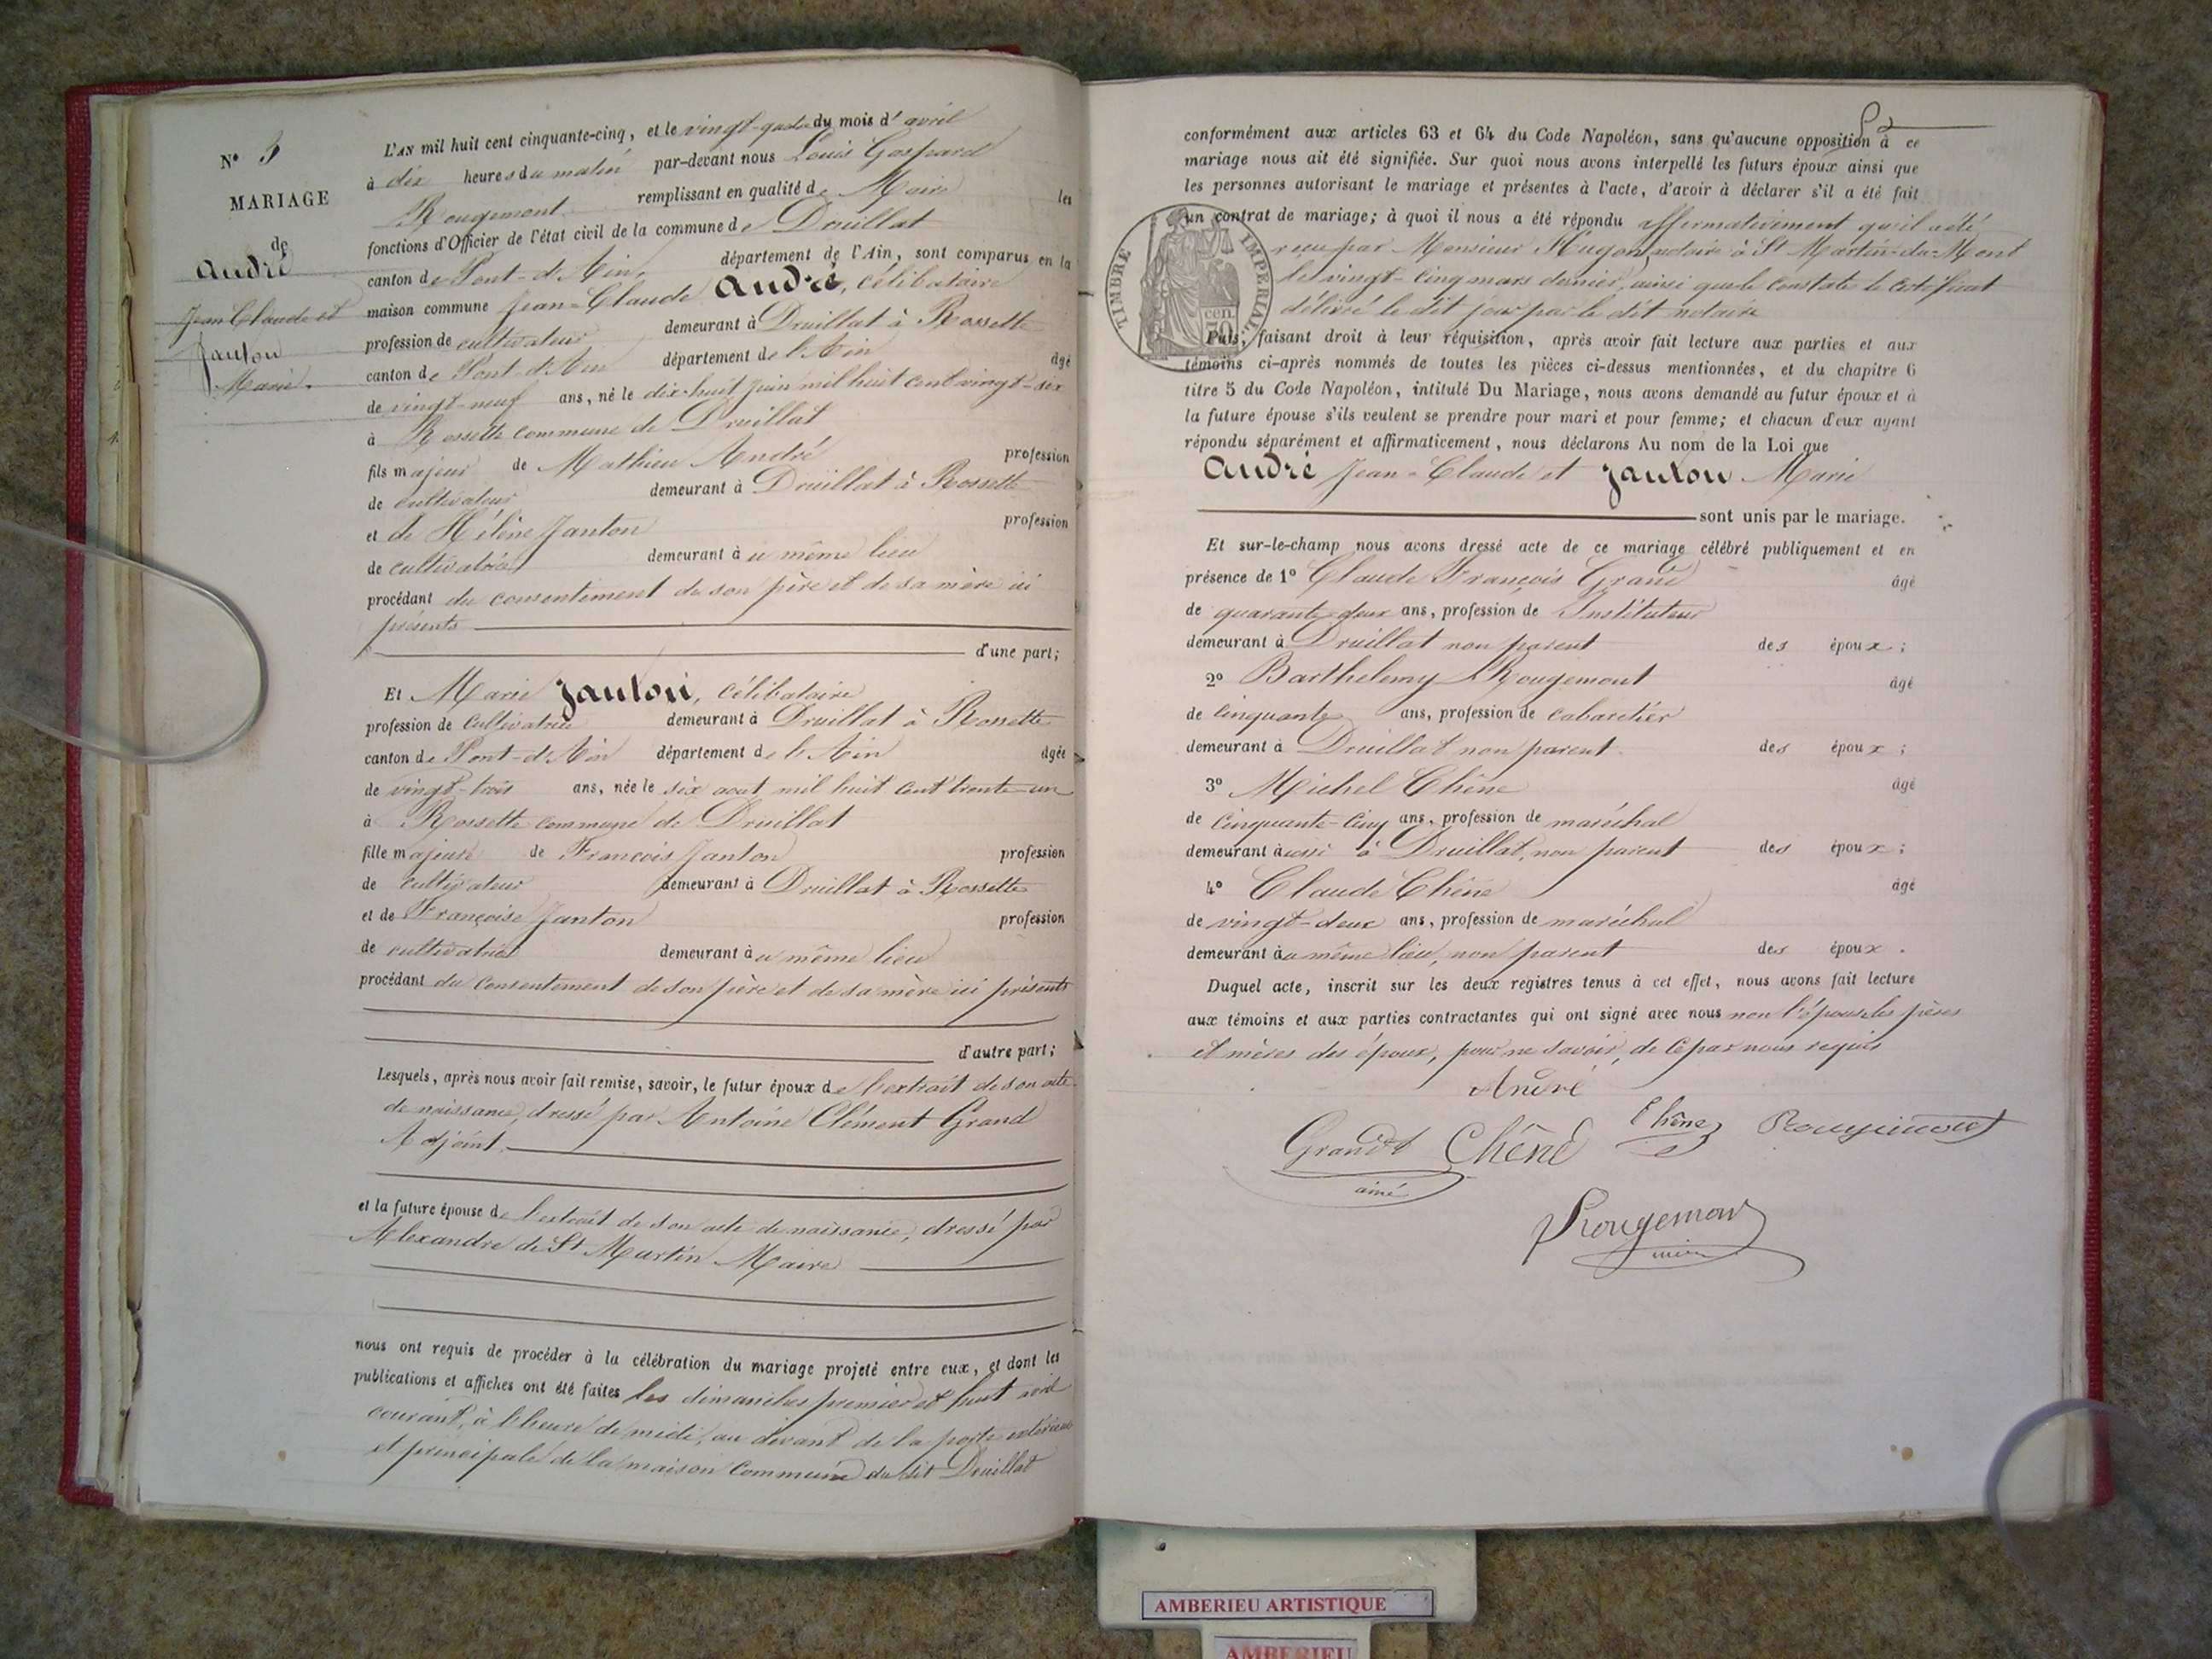 N° 5
MARIAGE
de
André
Jean Claude et
Janton
Marie.
L'AN mil huit cent cinquante-cinq, et le vingt-quatre du mois d'avril
à dix heures du matin par-devant nous Louis Gaspard
Rougemont remplissant en qualité de Maire les
fonctions d'Officier de l'état civil de la commune de Druillat
canton de Pont-d'Ain, département de l'Ain, sont comparus en la
maison commune Jean-Claude André, célibataire
profession de cultivateur demeurant à Druillat à Rossette
canton de Pont-d'Ain département de l'Ain âgé
de vingt-neuf ans, né le dix-huit juin mil huit cent vingt-six
à Rossette commune de Druillat
fils majeur de Mathieu André profession
de cultivateur demeurant à Druillat à Rossette
et de Hélène Janton profession
de cultivatrice demeurant au même lieu
procédant du consentement de son père et de sa mère ici
présents
d'une part;
Et Marie Janton, célibataire
profession de cultivatrice demeurant à Druillat à Rossette
canton de Pont-d'Ain département de l'Ain âgée
de vingt-trois ans, née le six aout mil huit cent trente-un
à Rossette commune de Druillat
fille majeure de François Janton profession
de cultivateur demeurant à Druillat à Rossette
et de Françoise Janton profession
de cultivatrice demeurant au même lieu
procédant du consentement de son père et de sa mère ici présents
d'autre part;
Lesquels, après nous avoir fait remise, savoir, le futur époux de l'extrait de son acte
de naissance, dressé par Antoine Clément Grand
Adjoint.
et la future épouse de l'extrait de son acte de naissance, dressé par
Alexandre de St Martin Maire
nous ont requis de procéder à la célébration du mariage projeté entre eux, et dont les
publications et affiches ont été faites les dimanches premier et huit avril
courant, à l'heure de midi, au devant de la porte extérieure
et principale de la maison commune du dit Druillat
conformément aux articles 63 et 64 du Code Napoléon, sans qu'aucune opposition à ce
mariage nous ait été signifiée. Sur quoi nous avons interpellé les futurs époux ainsi que
les personnes autorisant le mariage et présentes à l'acte, d'avoir à déclarer s'il a été fait
un contrat de mariage; à quoi il nous a été répondu affirmativement qu'il a été
reçu par Monsieur Hugon, notaire à St Martin-du-Mont
le vingt-cinq mars dernier, ainsi que le constate le certificat
délivré le dit jour par le dit notaire
TIMBRE IMPÉRIAL
cen.
Puis, faisant droit à leur réquisition, après avoir fait lecture aux parties et aux
témoins ci-après nommés de toutes les pièces ci-dessus mentionnées, et du chapitre 6
titre 5 du Code Napoléon, intitulé Du Mariage, nous avons demandé au futur époux et à
la future épouse s'ils veulent se prendre pour mari et pour femme; et chacun d'eux ayant
répondu séparément et affirmativement, nous déclarons Au nom de la Loi que
André Jean-Claude et Janton Marie
sont unis par le mariage.
Et sur-le-champ nous avons dressé acte de ce mariage célébré publiquement et en
présence de 1° Claude François Grand âgé
de quarante-deux ans, profession de Instituteur
demeurant à Druillat non parent des époux;
2° Barthelemy Rougemont âgé
de cinquante ans, profession de cabaretier
demeurant à Druillat non parent des époux;
3° Michel Chêne âgé
de cinquante-cinq ans, profession de maréchal
demeurant aussi à Druillat, non parent des époux;
4° Claude Chêne âgé
de vingt-deux ans, profession de maréchal
demeurant au même lieu, non parent des époux.
Duquel acte, inscrit sur les deux registres tenus à cet effet, nous avons fait lecture
aux témoins et aux parties contractantes qui ont signé avec nous non l'épouse les pères
et mères des époux, pour ne savoir, de ce par nous requis
André
Grand Chêne Chêne Rougemont
ainé
Rougemont
maire
AMBERIEU ARTISTIQUE
AMBERIEU